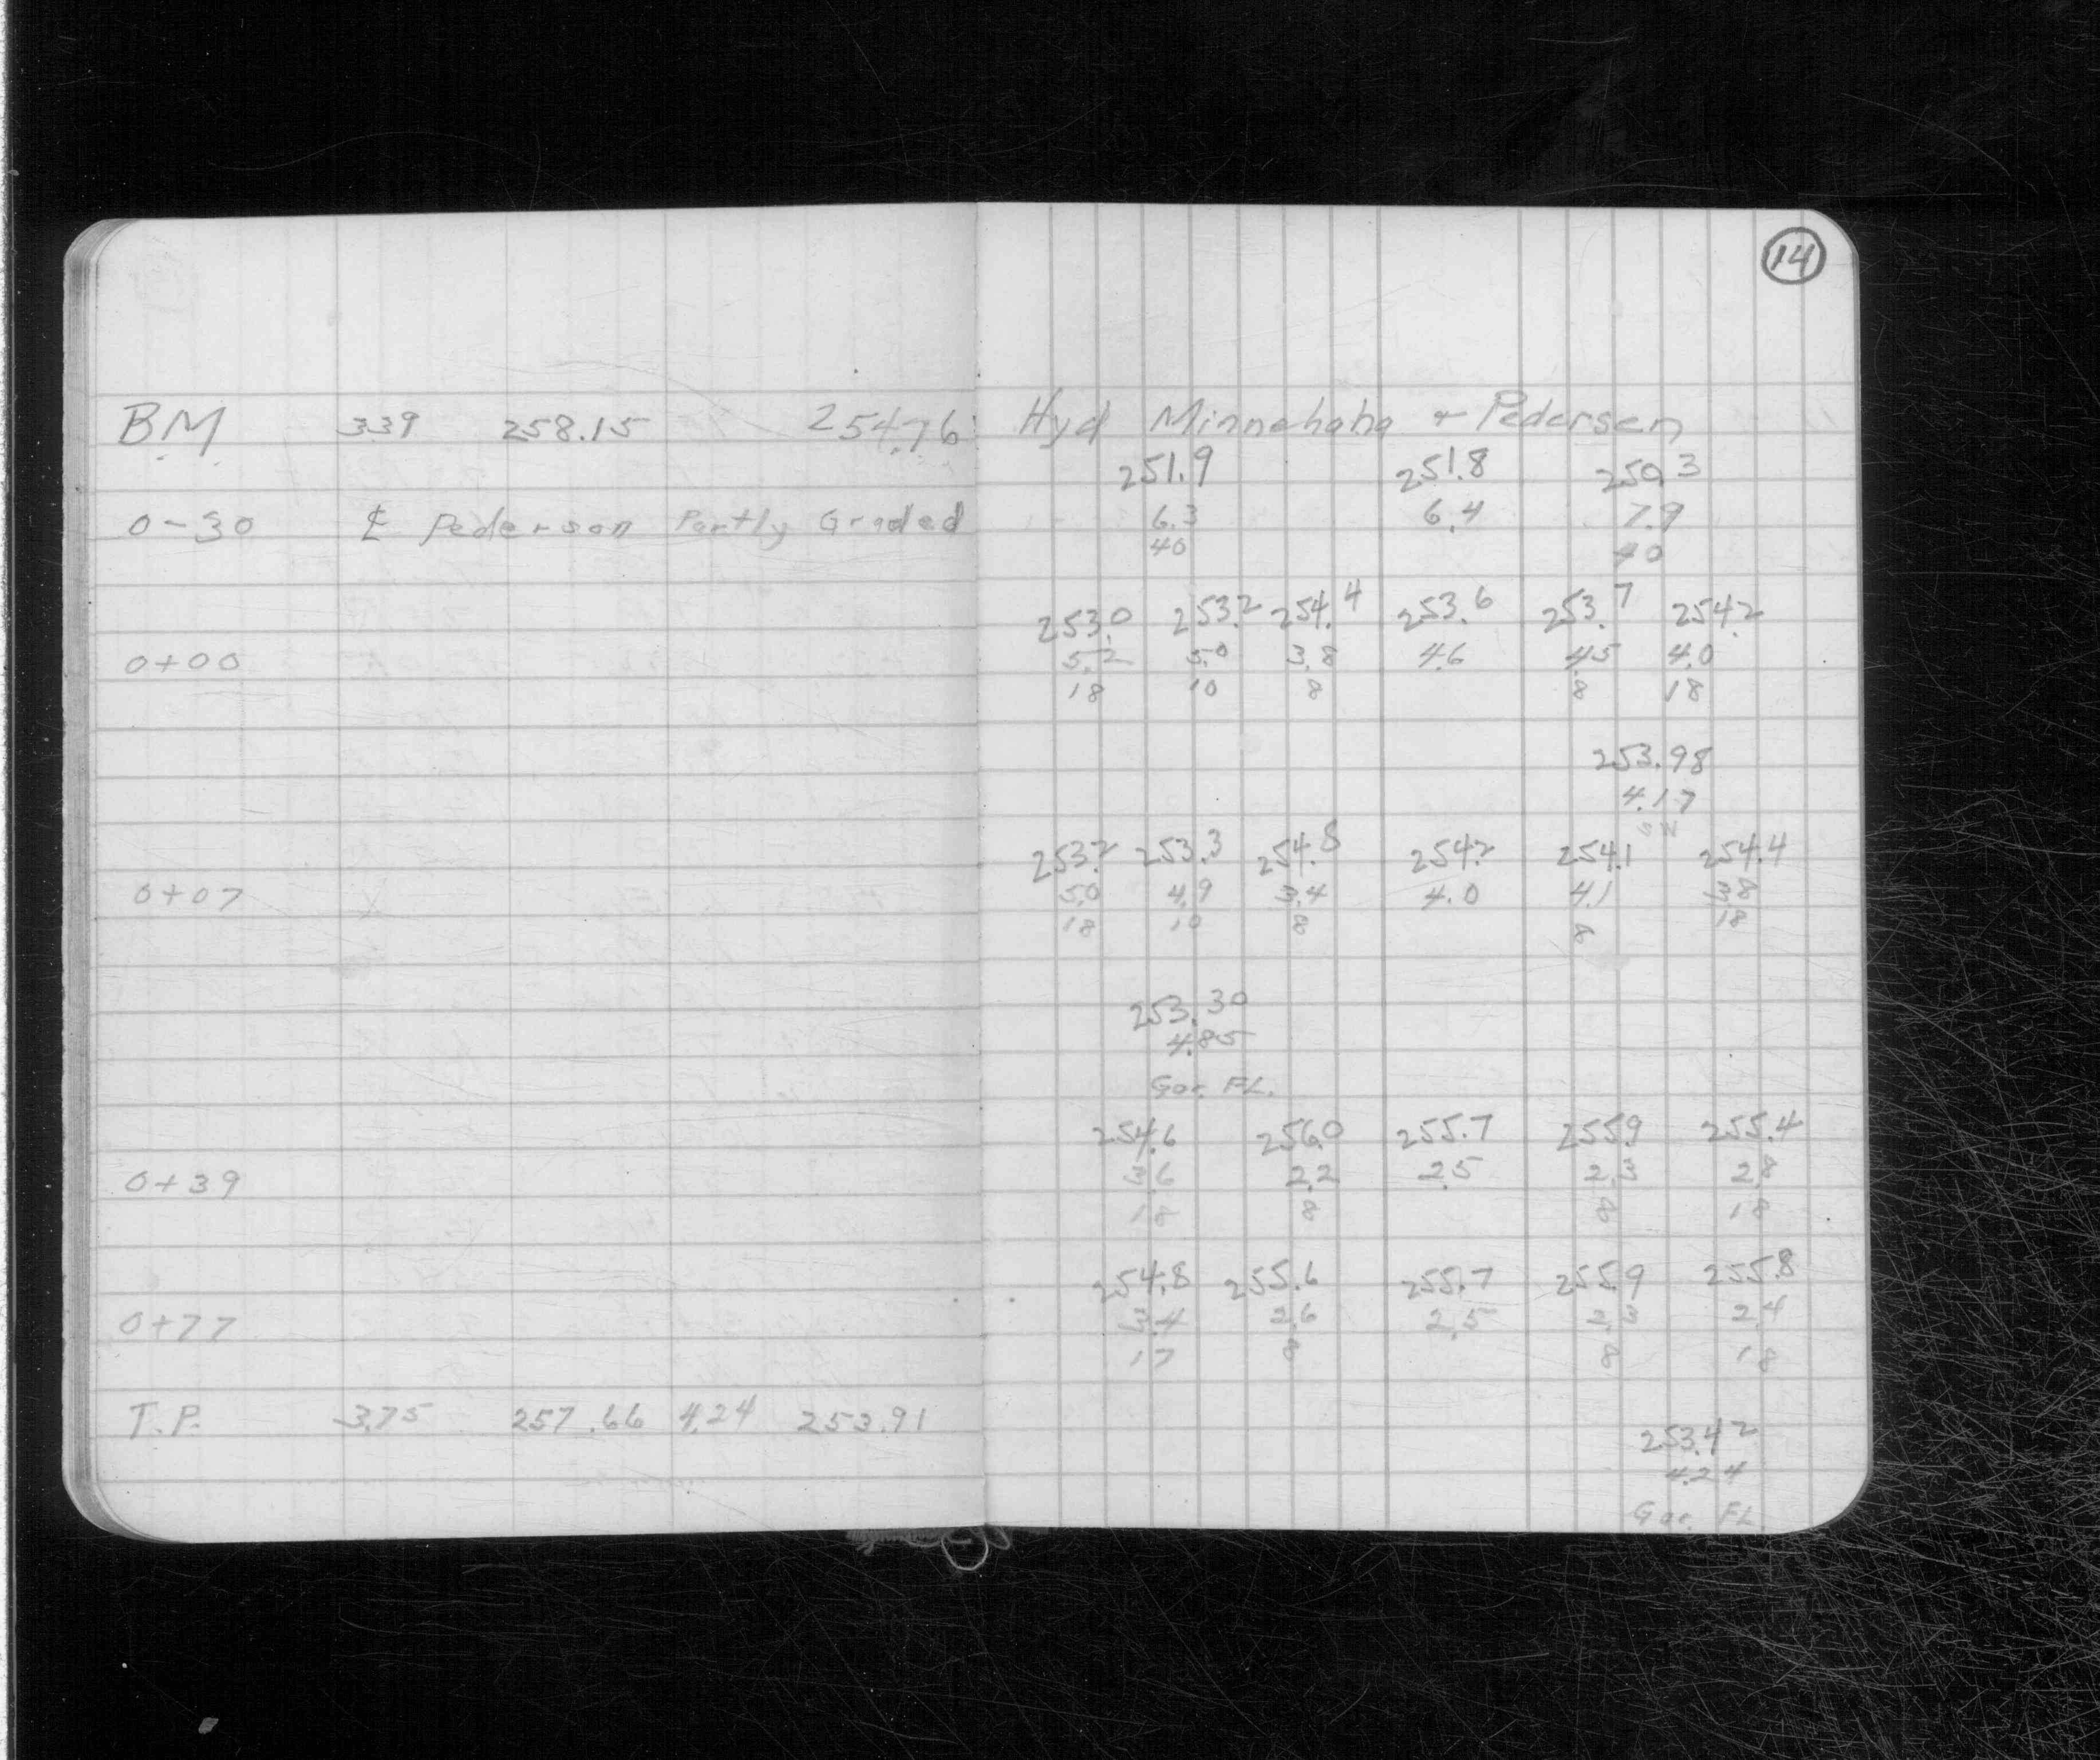 14
BM 3.39 258.15 254.76 Hyd Minnehaha + Pedersen
251.9 251.8 250.3
0-30 ℄ Pederson Partly Graded 6.3 6.4 7.9
40 40
253.0 253.2 254.4 253.6 253.7 254.2
0+00 5.2 5.0 3.8 4.6 4.5 4.0
18 10 8 8 18
253.98
4.17
SW
253.2 253.3 254.8 254.2 254.1 254.4
0+07 5.0 4.9 3.4 4.0 4.1 3.8
18 10 8 8 18
253.30
4.85
Gar. FL.
254.6 256.0 255.7 255.9 255.4
0+39 3.6 2.2 2.5 2.3 2.8
18 8 8 18
254.8 255.6 255.7 255.9 255.8
0+77 3.4 2.6 2.5 2.3 2.4
17 8 8 18
T.P. 3.75 257.66 4.24 253.91
253.42
4.24
Gar. FL